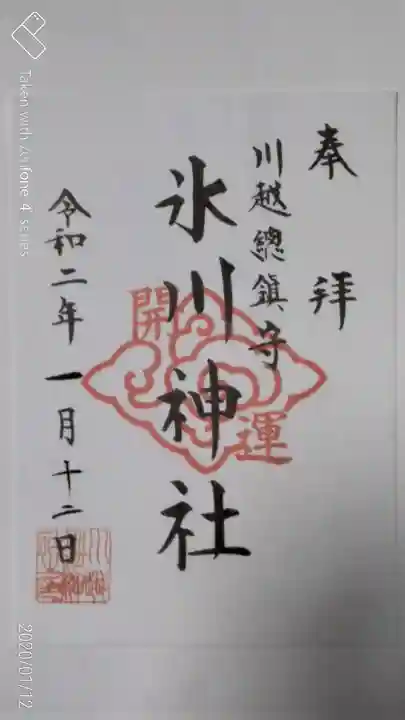 奉拝
川越總鎮守
氷川神社
開運
令和二年一月十二日
Taken with Zenfone 4 series
2020/01/12